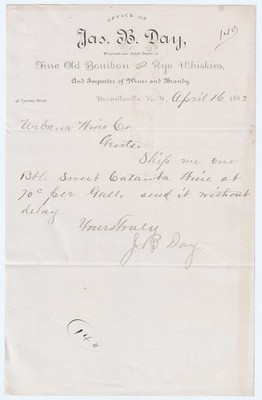 OFFICE OF
Jas. B. Day,
Wholesale and Retail Dealer in
Fine Old Bourbon and Rye Whiskies,
And Importer of Wines and Brandy
Hornellsville, N. Y., April 16 1882
Urbana Wine Co
Gents
Ship me one
Bbl. Sweet Catawba Wine at
70c per Gall. send it without
delay
Yours Truly
J B Day
140